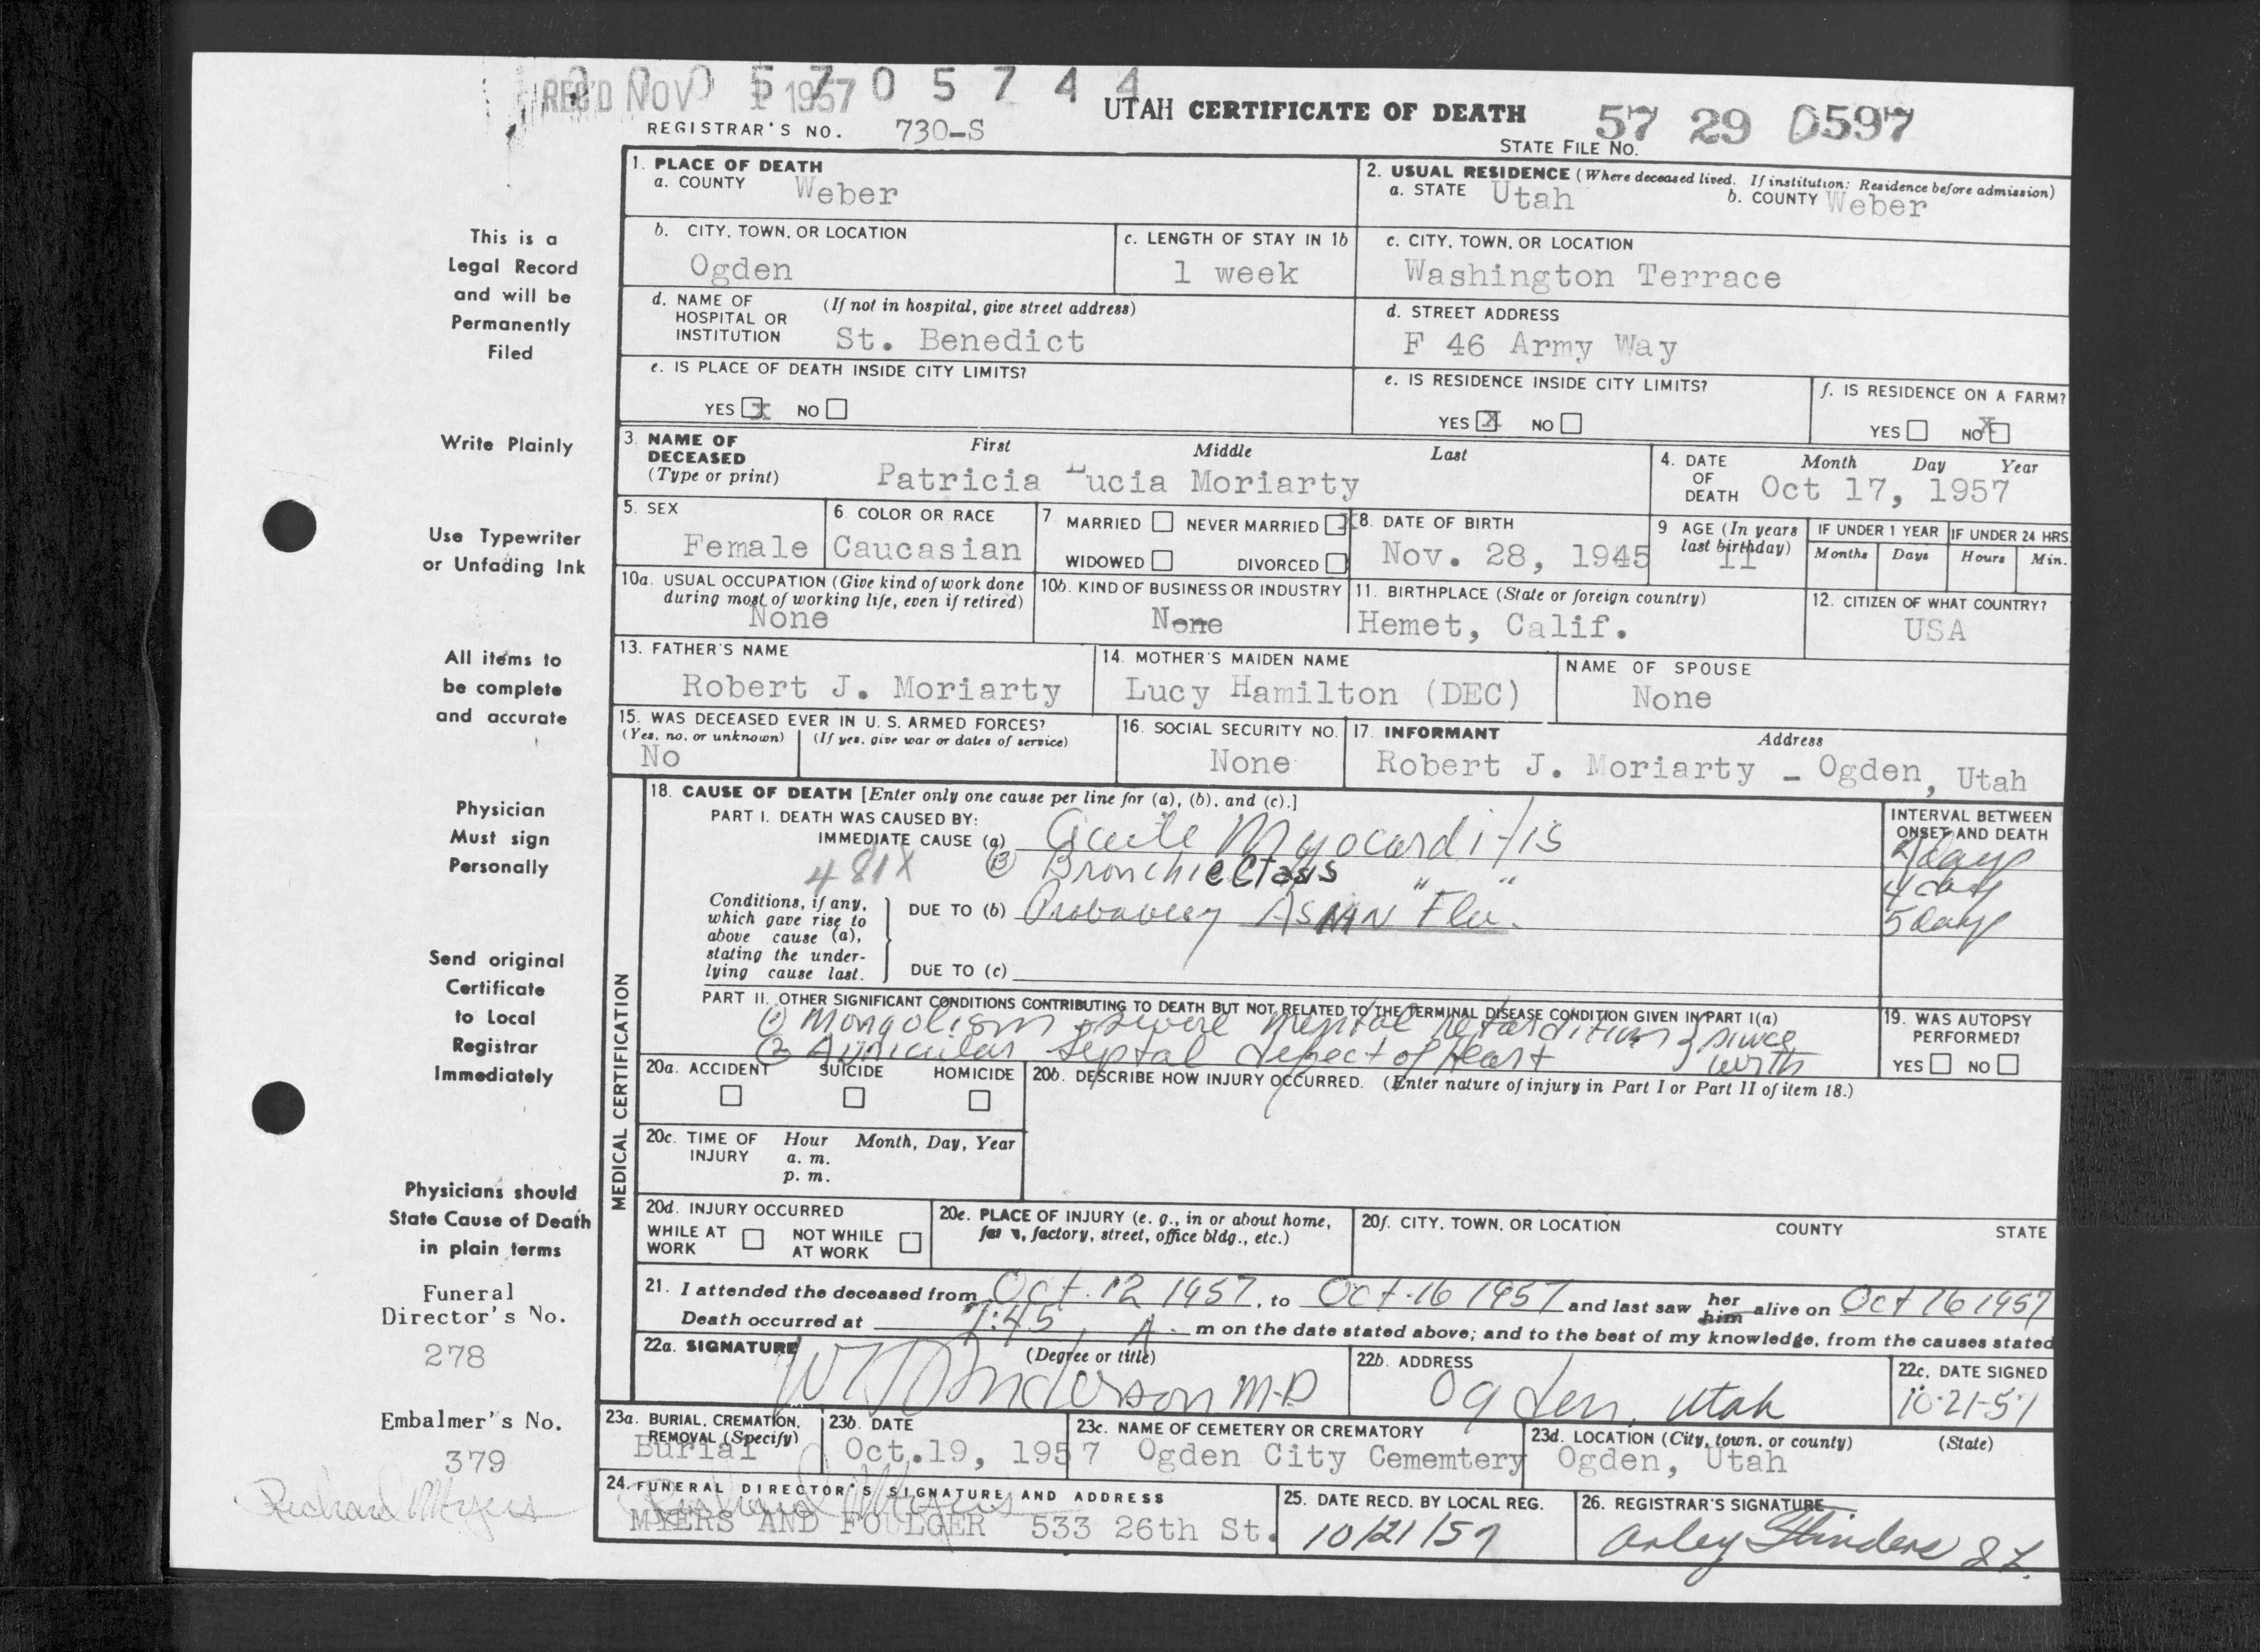 REC'D NOV 1 1957
0 5 7 0 5 7 4 4
UTAH CERTIFICATE OF DEATH
57 29 0597
REGISTRAR'S NO. 730-S
STATE FILE NO.
1. PLACE OF DEATH
a. COUNTY Weber
2. USUAL RESIDENCE (Where deceased lived. If institution: Residence before admission)
a. STATE Utah b. COUNTY Weber
b. CITY, TOWN, OR LOCATION
Ogden
c. LENGTH OF STAY IN 1b
1 week
c. CITY, TOWN, OR LOCATION
Washington Terrace
d. NAME OF HOSPITAL OR INSTITUTION (If not in hospital, give street address)
St. Benedict
d. STREET ADDRESS
F 46 Army Way
e. IS PLACE OF DEATH INSIDE CITY LIMITS?
YES X NO
e. IS RESIDENCE INSIDE CITY LIMITS?
YES X NO
f. IS RESIDENCE ON A FARM?
YES NO X
3. NAME OF DECEASED (Type or print)
First Middle Last
Patricia Lucia Moriarty
4. DATE OF DEATH
Month Day Year
Oct 17, 1957
5. SEX
Female
6. COLOR OR RACE
Caucasian
7 MARRIED NEVER MARRIED X
WIDOWED DIVORCED
8. DATE OF BIRTH
Nov. 28, 1945
9 AGE (In years last birthday)
11
IF UNDER 1 YEAR
Months Days
IF UNDER 24 HRS.
Hours Min.
10a. USUAL OCCUPATION (Give kind of work done during most of working life, even if retired)
None
10b. KIND OF BUSINESS OR INDUSTRY
None
11. BIRTHPLACE (State or foreign country)
Hemet, Calif.
12. CITIZEN OF WHAT COUNTRY?
USA
13. FATHER'S NAME
Robert J. Moriarty
14. MOTHER'S MAIDEN NAME
Lucy Hamilton (DEC)
NAME OF SPOUSE
None
15. WAS DECEASED EVER IN U. S. ARMED FORCES?
(Yes, no, or unknown) (If yes, give war or dates of service)
No
16. SOCIAL SECURITY NO.
None
17. INFORMANT Address
Robert J. Moriarty - Ogden, Utah
MEDICAL CERTIFICATION
18. CAUSE OF DEATH [Enter only one cause per line for (a), (b), and (c).]
INTERVAL BETWEEN ONSET AND DEATH
PART I. DEATH WAS CAUSED BY:
IMMEDIATE CAUSE (a) Acute Myocarditis
day
481X Bronchiectasis
4 day
Conditions, if any, which gave rise to above cause (a), stating the underlying cause last.
DUE TO (b) Probabley Asian "Flu".
5 day
DUE TO (c)
PART II. OTHER SIGNIFICANT CONDITIONS CONTRIBUTING TO DEATH BUT NOT RELATED TO THE TERMINAL DISEASE CONDITION GIVEN IN PART I(a)
(1) Mongolism severe mental retardition } since
(2) Auricular Septal defect of Heart } birth
19. WAS AUTOPSY PERFORMED?
YES NO
20a. ACCIDENT SUICIDE HOMICIDE
20b. DESCRIBE HOW INJURY OCCURRED. (Enter nature of injury in Part I or Part II of item 18.)
20c. TIME OF INJURY Hour Month, Day, Year
a. m.
p. m.
20d. INJURY OCCURRED
WHILE AT WORK NOT WHILE AT WORK
20e. PLACE OF INJURY (e. g., in or about home, farm, factory, street, office bldg., etc.)
20f. CITY, TOWN, OR LOCATION COUNTY STATE
21. I attended the deceased from Oct. 12 1957, to Oct. 16 1957 and last saw her him alive on Oct 16 1957
Death occurred at 7:45 A. m on the date stated above; and to the best of my knowledge, from the causes stated
22a. SIGNATURE (Degree or title)
Anderson M.D
22b. ADDRESS
Ogden, Utah
22c. DATE SIGNED
10-21-57
23a. BURIAL, CREMATION, REMOVAL (Specify)
Burial
23b. DATE
Oct.19, 1957
23c. NAME OF CEMETERY OR CREMATORY
Ogden City Cememtery
23d. LOCATION (City, town, or county) (State)
Ogden, Utah
24. FUNERAL DIRECTOR'S SIGNATURE AND ADDRESS
Richard Myers
MYERS AND FOULGER 533 26th St.
25. DATE RECD. BY LOCAL REG.
10/21/57
26. REGISTRAR'S SIGNATURE
This is a
Legal Record
and will be
Permanently
Filed
Write Plainly
Use Typewriter
or Unfading Ink
All items to
be complete
and accurate
Physician
Must sign
Personally
Send original
Certificate
to Local
Registrar
Immediately
Physicians should
State Cause of Death
in plain terms
Funeral
Director's No.
278
Embalmer's No.
379
Richard Myers